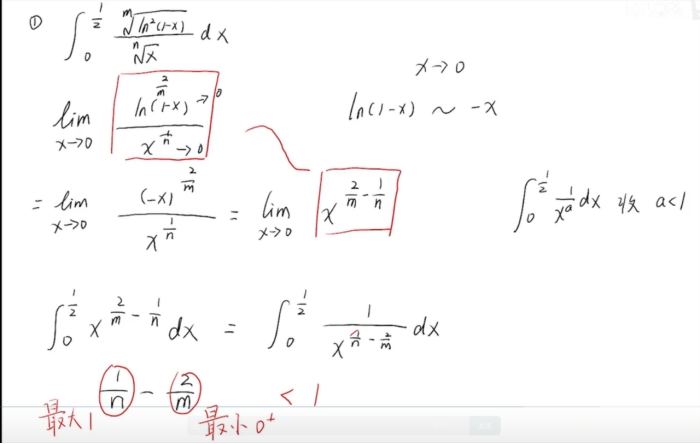 ① ∫₀^{1/2} \frac{\sqrt[m]{ln²(1-x)}}{\sqrt[n]{x}} dx
x→0
lim_{x→0} \frac{ln(1-x)^{2/m} →0}{x^{1/n} →0}
ln(1-x) ~ -x
= lim_{x→0} \frac{(-x)^{2/m}}{x^{1/n}} = lim_{x→0} x^{2/m - 1/n}
∫₀^{1/2} \frac{1}{x^a} dx 收 a<1
∫₀^{1/2} x^{2/m - 1/n} dx = ∫₀^{1/2} \frac{1}{x^{1/n - 2/m}} dx
1/n - 2/m < 1
最大1 最小0⁺